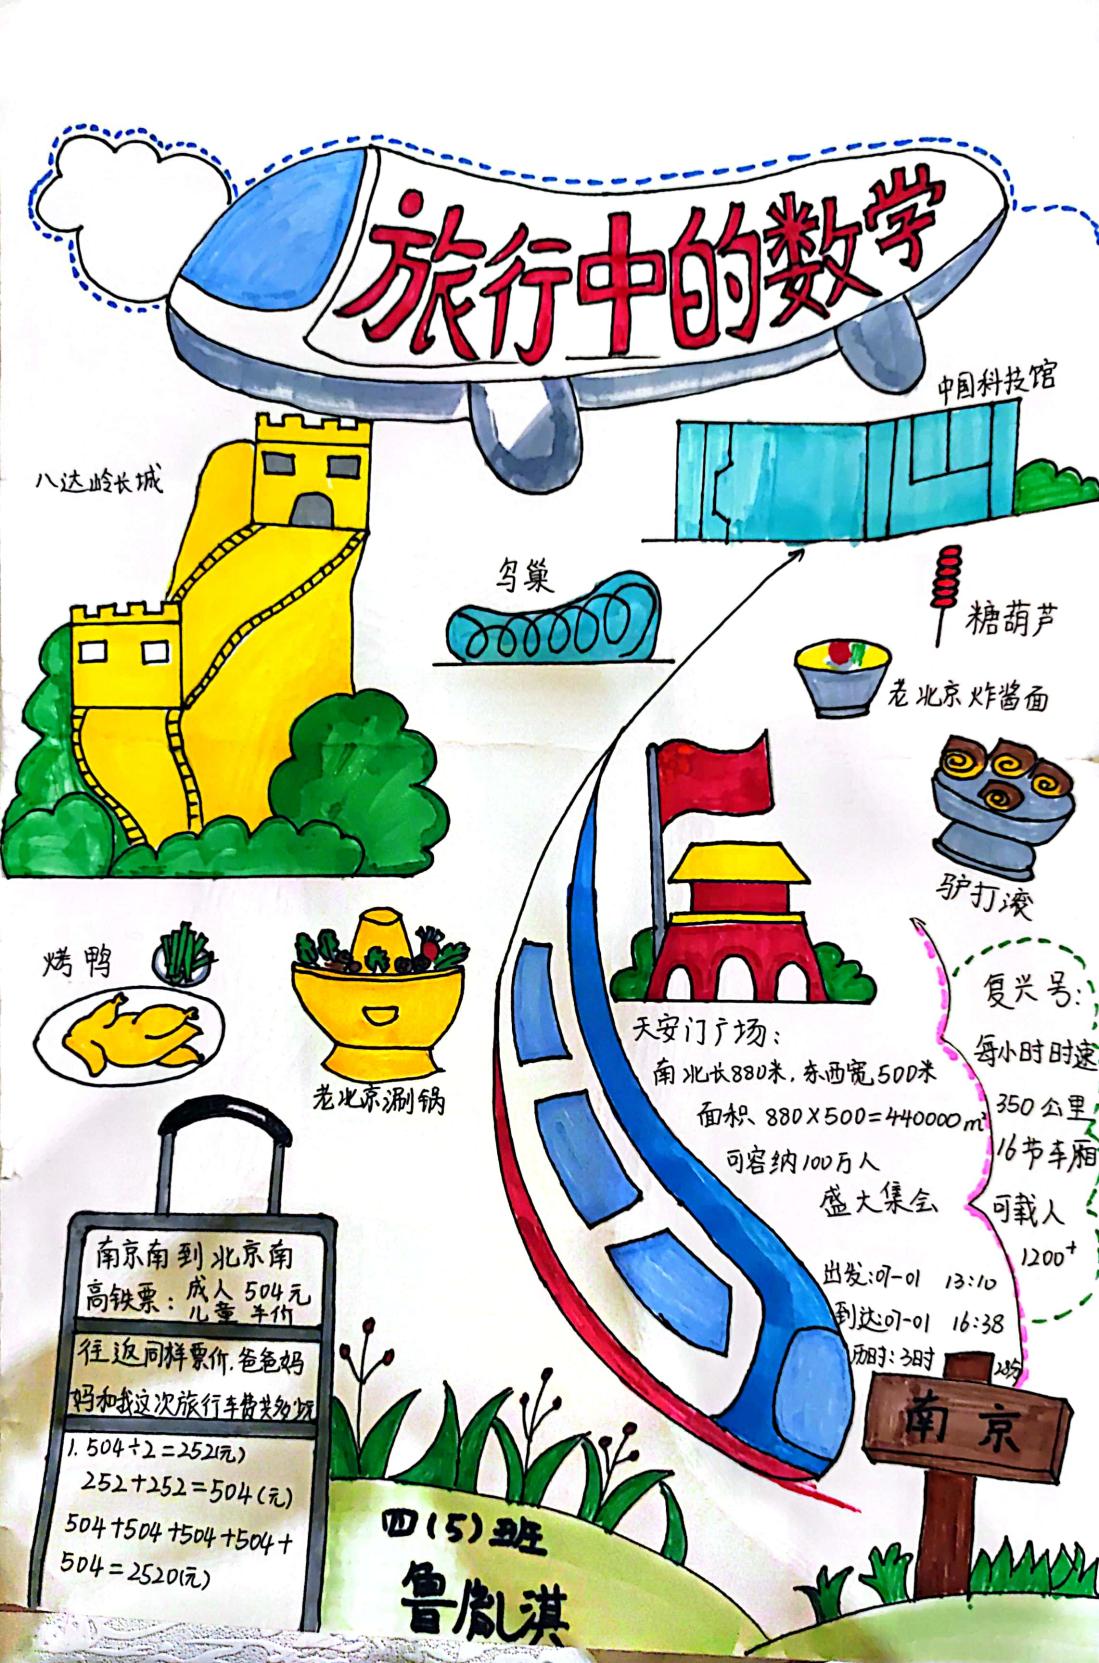 旅行中的数学
中国科技馆
八达岭长城
鸟巢
糖葫芦
老北京炸酱面
驴打滚
烤鸭
老北京涮锅
天安门广场:
南北长880米,东西宽500米
面积、880×500=440000m²
可容纳100万人
盛大集会
复兴号:
每小时时速
350公里
16节车厢
可载人
1200⁺
出发:07-01 13:10
到达:07-01 16:38
历时:3时28分
南京
南京南到北京南
高铁票:成人 504元
儿童 半价
往返同样票价.爸爸妈
妈和我这次旅行车费共多少元
1.504÷2=252(元)
252+252=504(元)
504+504+504+504+
504=2520(元)
四(5)班
鲁胤淇